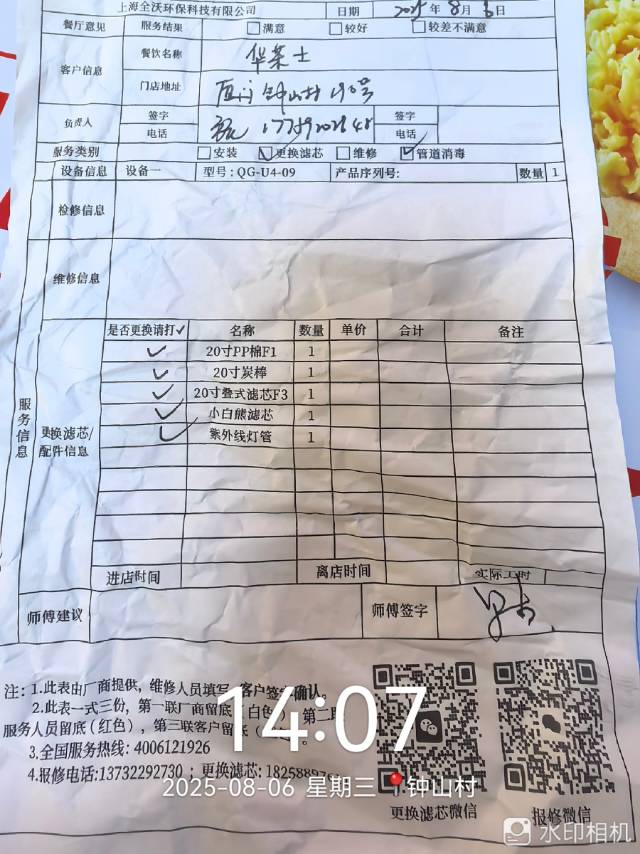 上海全沃环保科技有限公司 日期 2025年8月6日
餐厅意见 服务结果 □满意 □较好 □较差不满意
客户信息 餐饮名称 华莱士
门店地址 厦门钟山村190号
负责人 签字 签字
电话 电话
服务类别 □安装 ☑更换滤芯 □维修 ☑管道消毒
设备信息 设备一 型号:QG-U4-09 产品序列号: 数量 1
检修信息
维修信息
服务信息
更换滤芯/配件信息
是否更换请打✓ 名称 数量 单价 合计 备注
✓ 20寸PP棉F1 1
✓ 20寸炭棒 1
✓ 20寸叠式滤芯F3 1
✓ 小白熊滤芯 1
✓ 紫外线灯管 1
进店时间 离店时间 实际工时
师傅建议 师傅签字
注:1.此表由厂商提供,维修人员填写,客户签字确认。
2.此表一式三份,第一联厂商留底(白色),第二联
服务人员留底(红色),第三联客户留底(
3.全国服务热线:4006121926
4.报修电话:13732292730;更换滤芯:18258897
更换滤芯微信 报修微信
14:07
2025-08-06 星期三 钟山村
水印相机